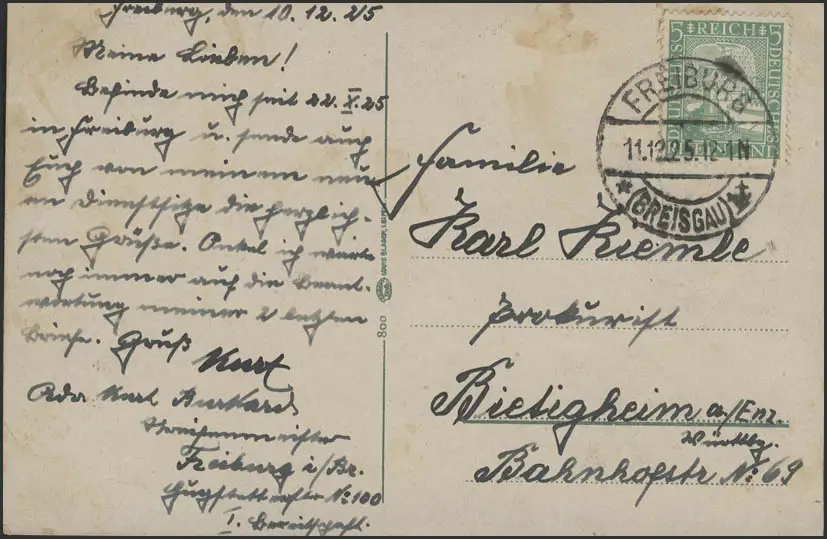 Freiburg, den 10.12.25
Meine Lieben!
Befinde mich seit 22.X.25
in Freiburg u. sende auch
Euch von meinem neu-
en Dienstsitze die herzlich-
sten Grüße. Onkel ich warte
noch immer auf die Beant-
wortung meiner 2 letzten
Briefe. Gruß
Kurt
Adr. Kurt Burkard
Freiburg i/Br.
Hugstetterstr No 100
I. Bereitschaft.
800
LOUIS GLASER, LEIPZIG
5 REICH 5
DEUTSCHES
FREIBURG
11.12.25.12-1N
* (BREISGAU)
Familie
Karl Kiemle
Prokurist
Bietigheim a/Enz.
Württbg.
Bahnhofstr No 69